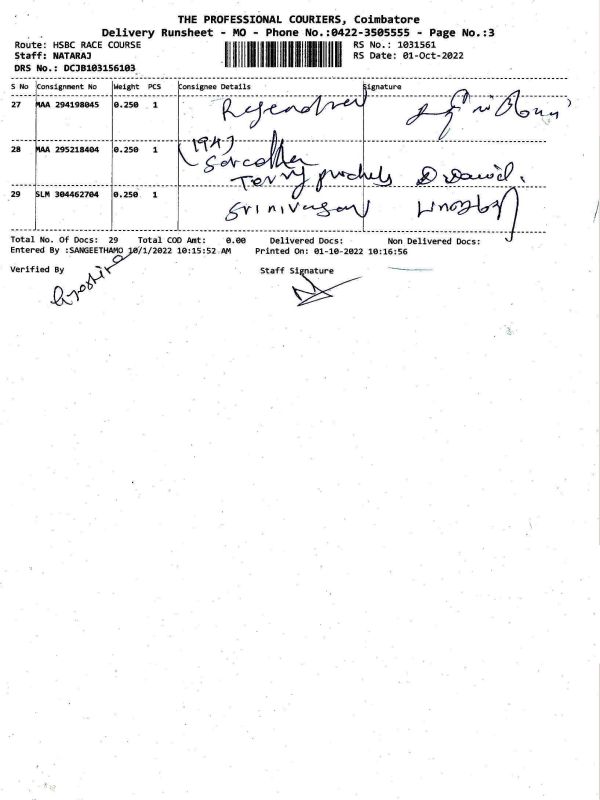 THE PROFESSIONAL COURIERS, Coimbatore
Delivery Runsheet - MO - Phone No.:0422-3505555 - Page No.:3
Route: HSBC RACE COURSE RS No.: 1031561
Staff: NATARAJ RS Date: 01-Oct-2022
DRS No.: DCJB103156103
S No Consignment No Weight PCS Consignee Details Signature
27 MAA 294198045 0.250 1
28 MAA 295218404 0.250 1 (194)
Terry D David.
29 SLM 304462704 0.250 1 Srinivasan
Total No. Of Docs: 29 Total COD Amt: 0.00 Delivered Docs: Non Delivered Docs:
Entered By :SANGEETHAMO 10/1/2022 10:15:52 AM Printed On: 01-10-2022 10:16:56
Verified By Staff Signature